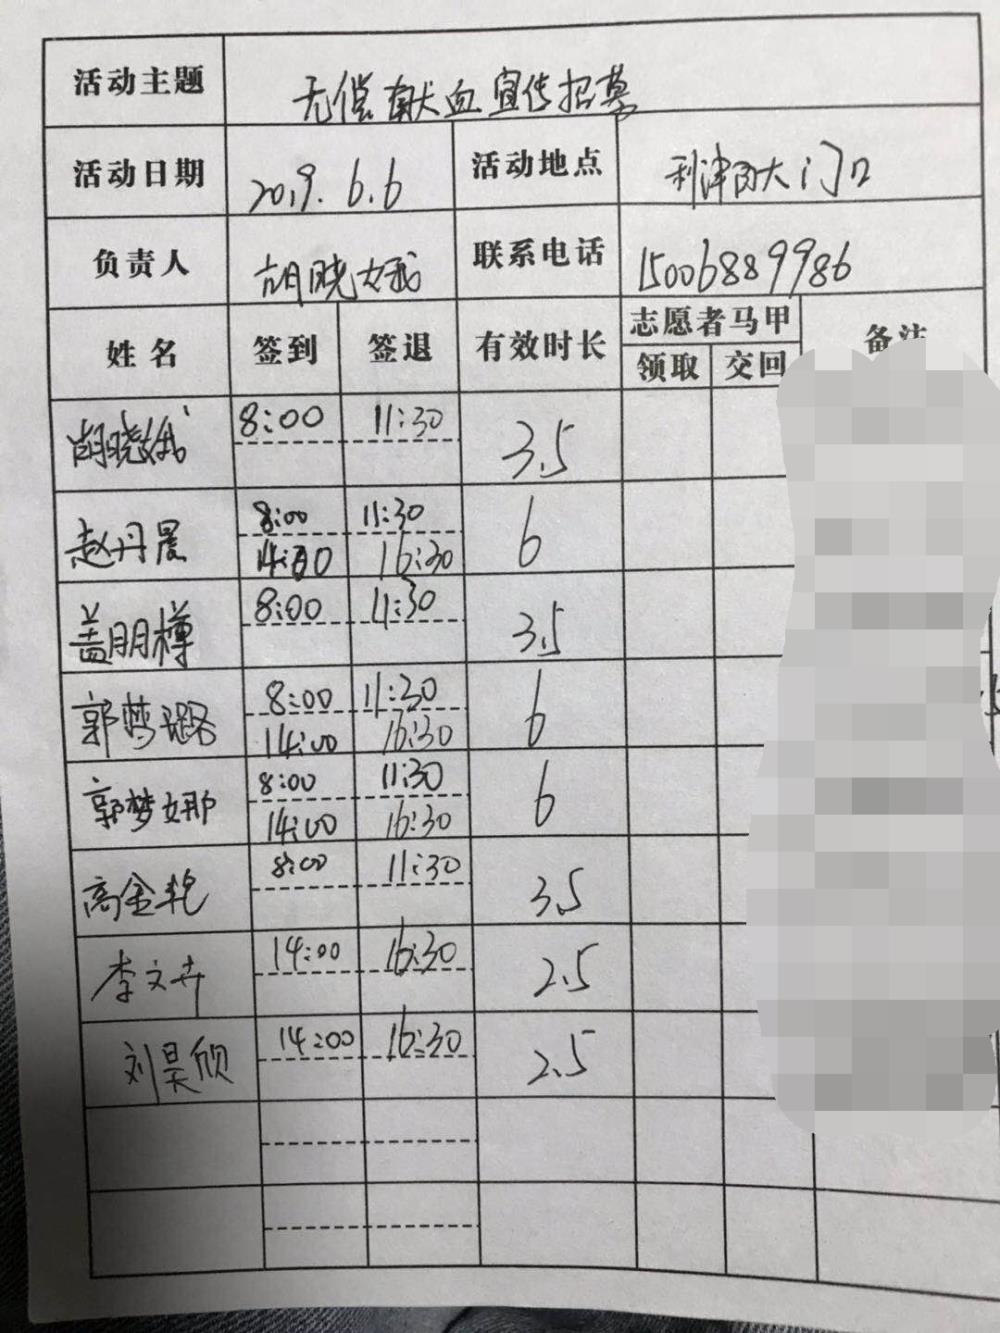 活动主题 无偿献血宣传招募
活动日期 2019.6.6 活动地点 利津路大门口
负责人 胡晓娥 联系电话 15006889986
姓名 签到 签退 有效时长 志愿者马甲 备注
领取 交回
胡晓娥 8:00 11:30 3.5
赵丹晨 8:00 11:30 6
14:00 16:30
盖朋樽 8:00 11:30 3.5
郭梦璐 8:00 11:30 6
14:00 16:30
郭梦娜 8:00 11:30 6
14:00 16:30
高金艳 8:00 11:30 3.5
李文卉 14:00 16:30 2.5
刘昊欣 14:00 16:30 2.5